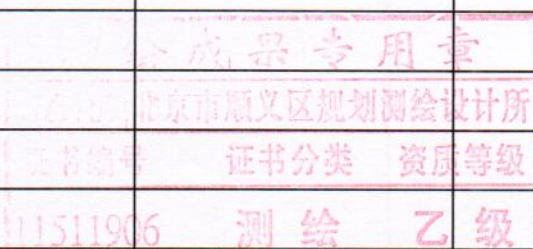 成果专用章
北京市顺义区规划测绘设计所
证书编号 证书分类 资质等级
11511906 测绘 乙级